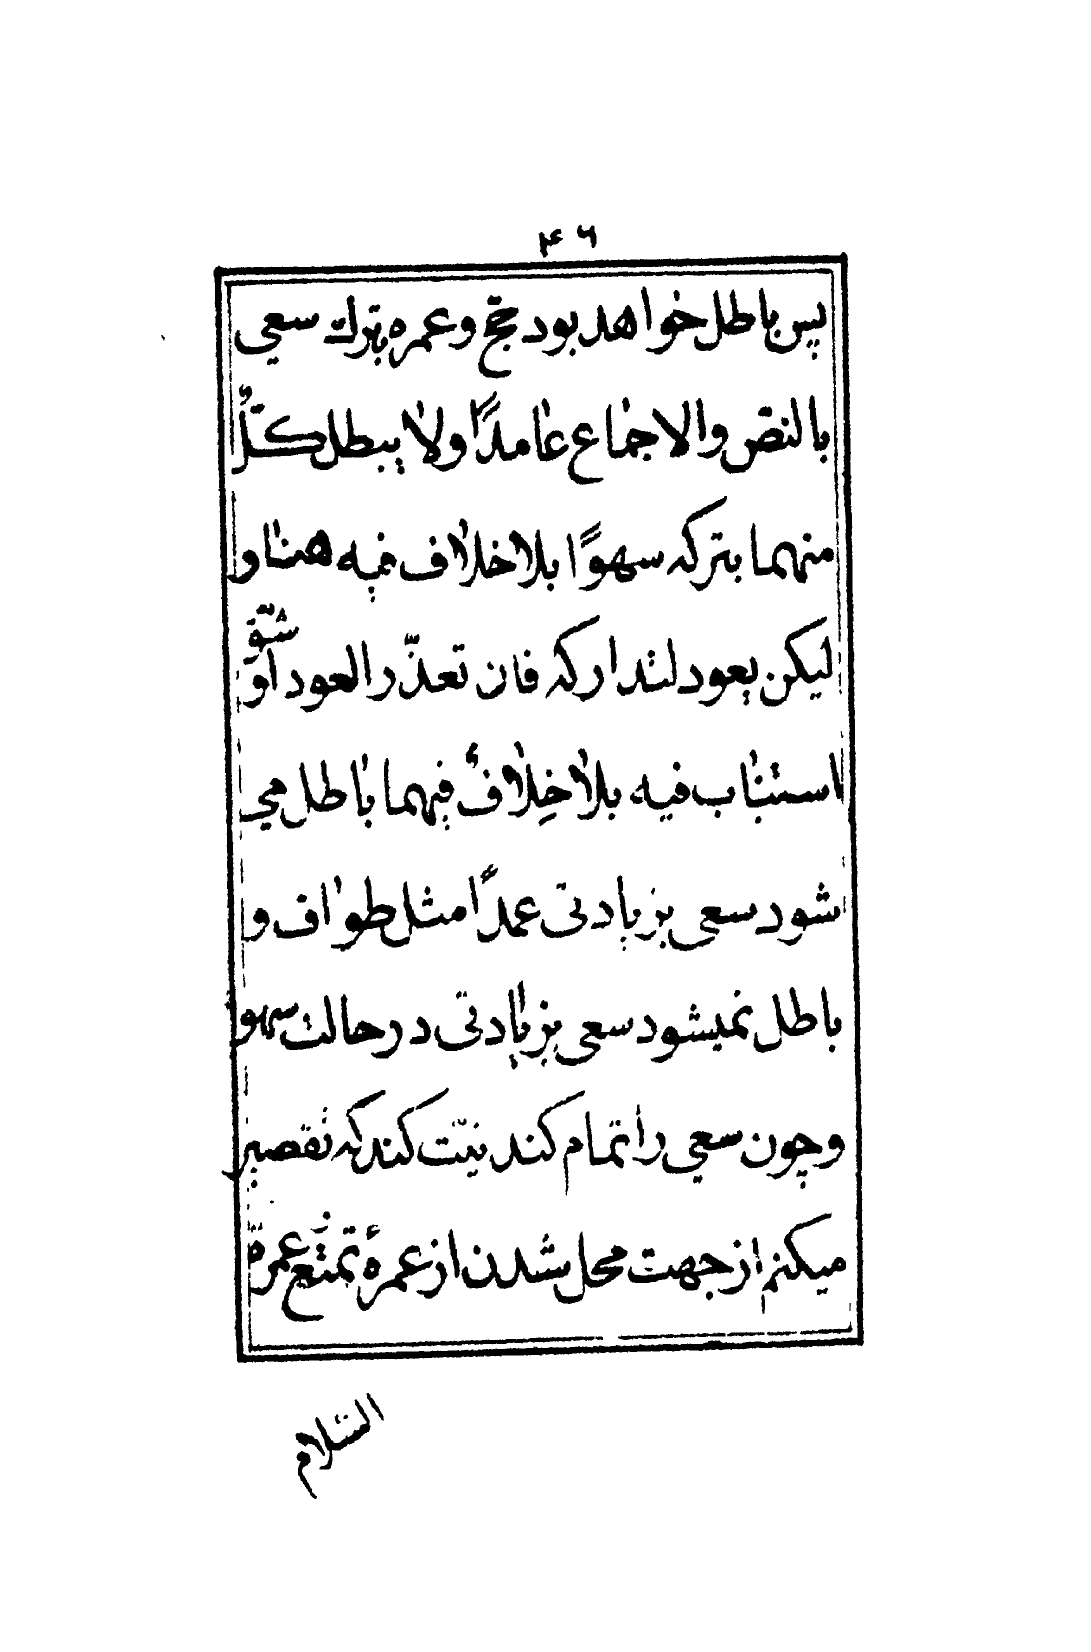 ۴۶
پس باطل خواهد بود حج و عمره بترك سعی
بالنص والاجماع عامدًا ولا يبطل كلٌّ
منهما بتركه سهوًا بلا خلاف فيه هنا و
ليكن يعود لتداركه فان تعذّر العود او شقّ
استناب فيه بلا خِلافٌ فيهما باطل می
شود سعی بزیادتی عمدًا مثل طواف و
باطل نمیشود سعی بزیادتی در حالت سهو
و چون سعی را تمام کند نیّت کند که تقصیر
میکنم از جهت محل شدن از عمرهٔ تمتّع عمرهٔ
السّلام